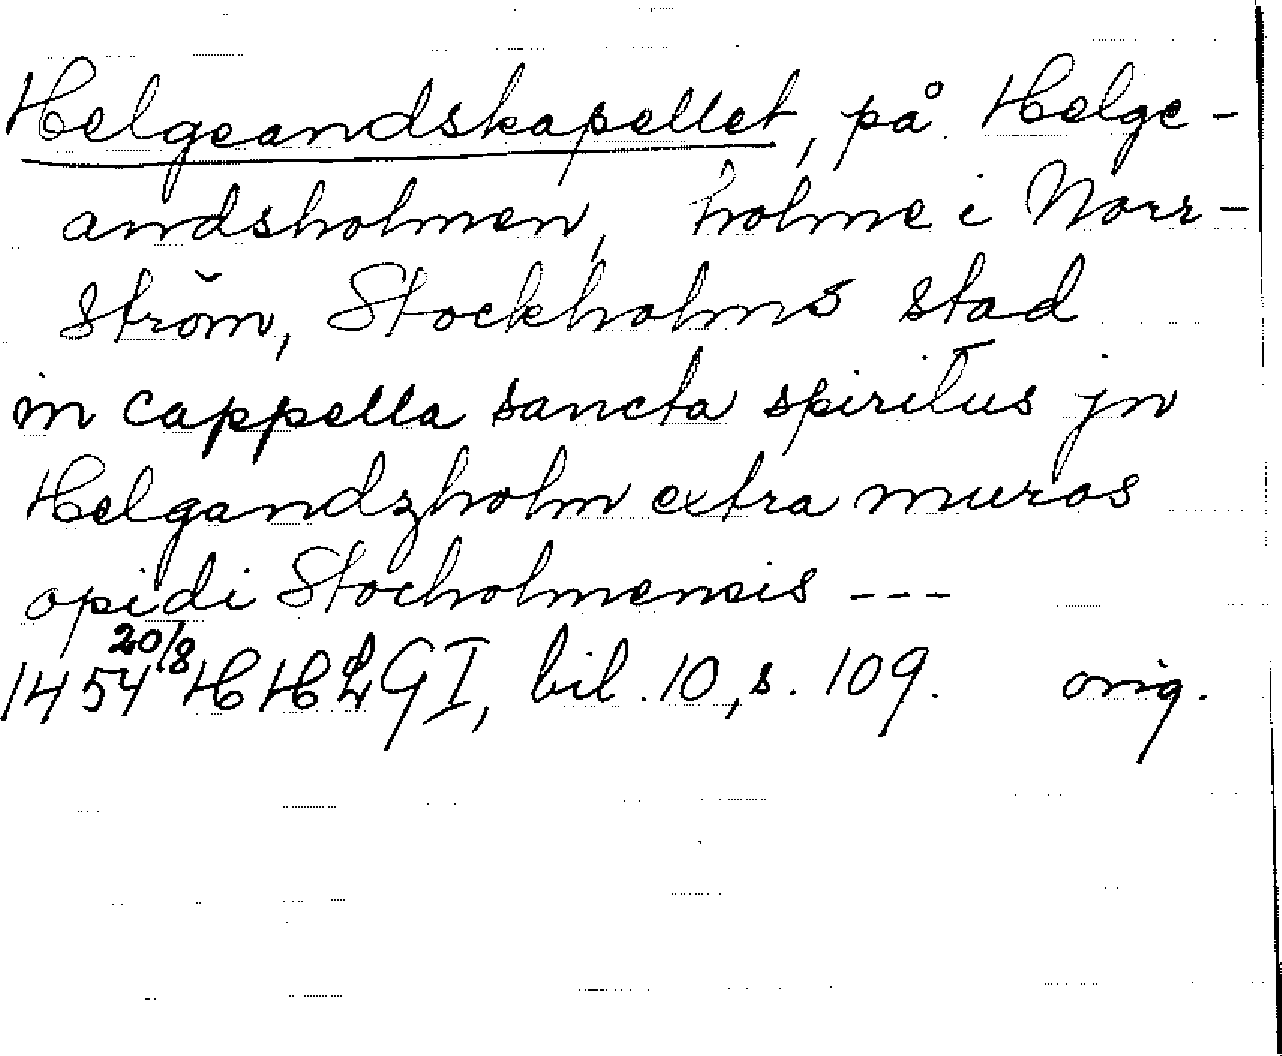 Helgeandskapellet, på Helge-
andsholmen, holme i Norr-
ström, Stockholms stad
in cappella sancta spiritus jn
Helgandzholm extra muros
opidi Stocholmensis ---
1454 20/8 HHLGI, bil. 10, s. 109. orig.